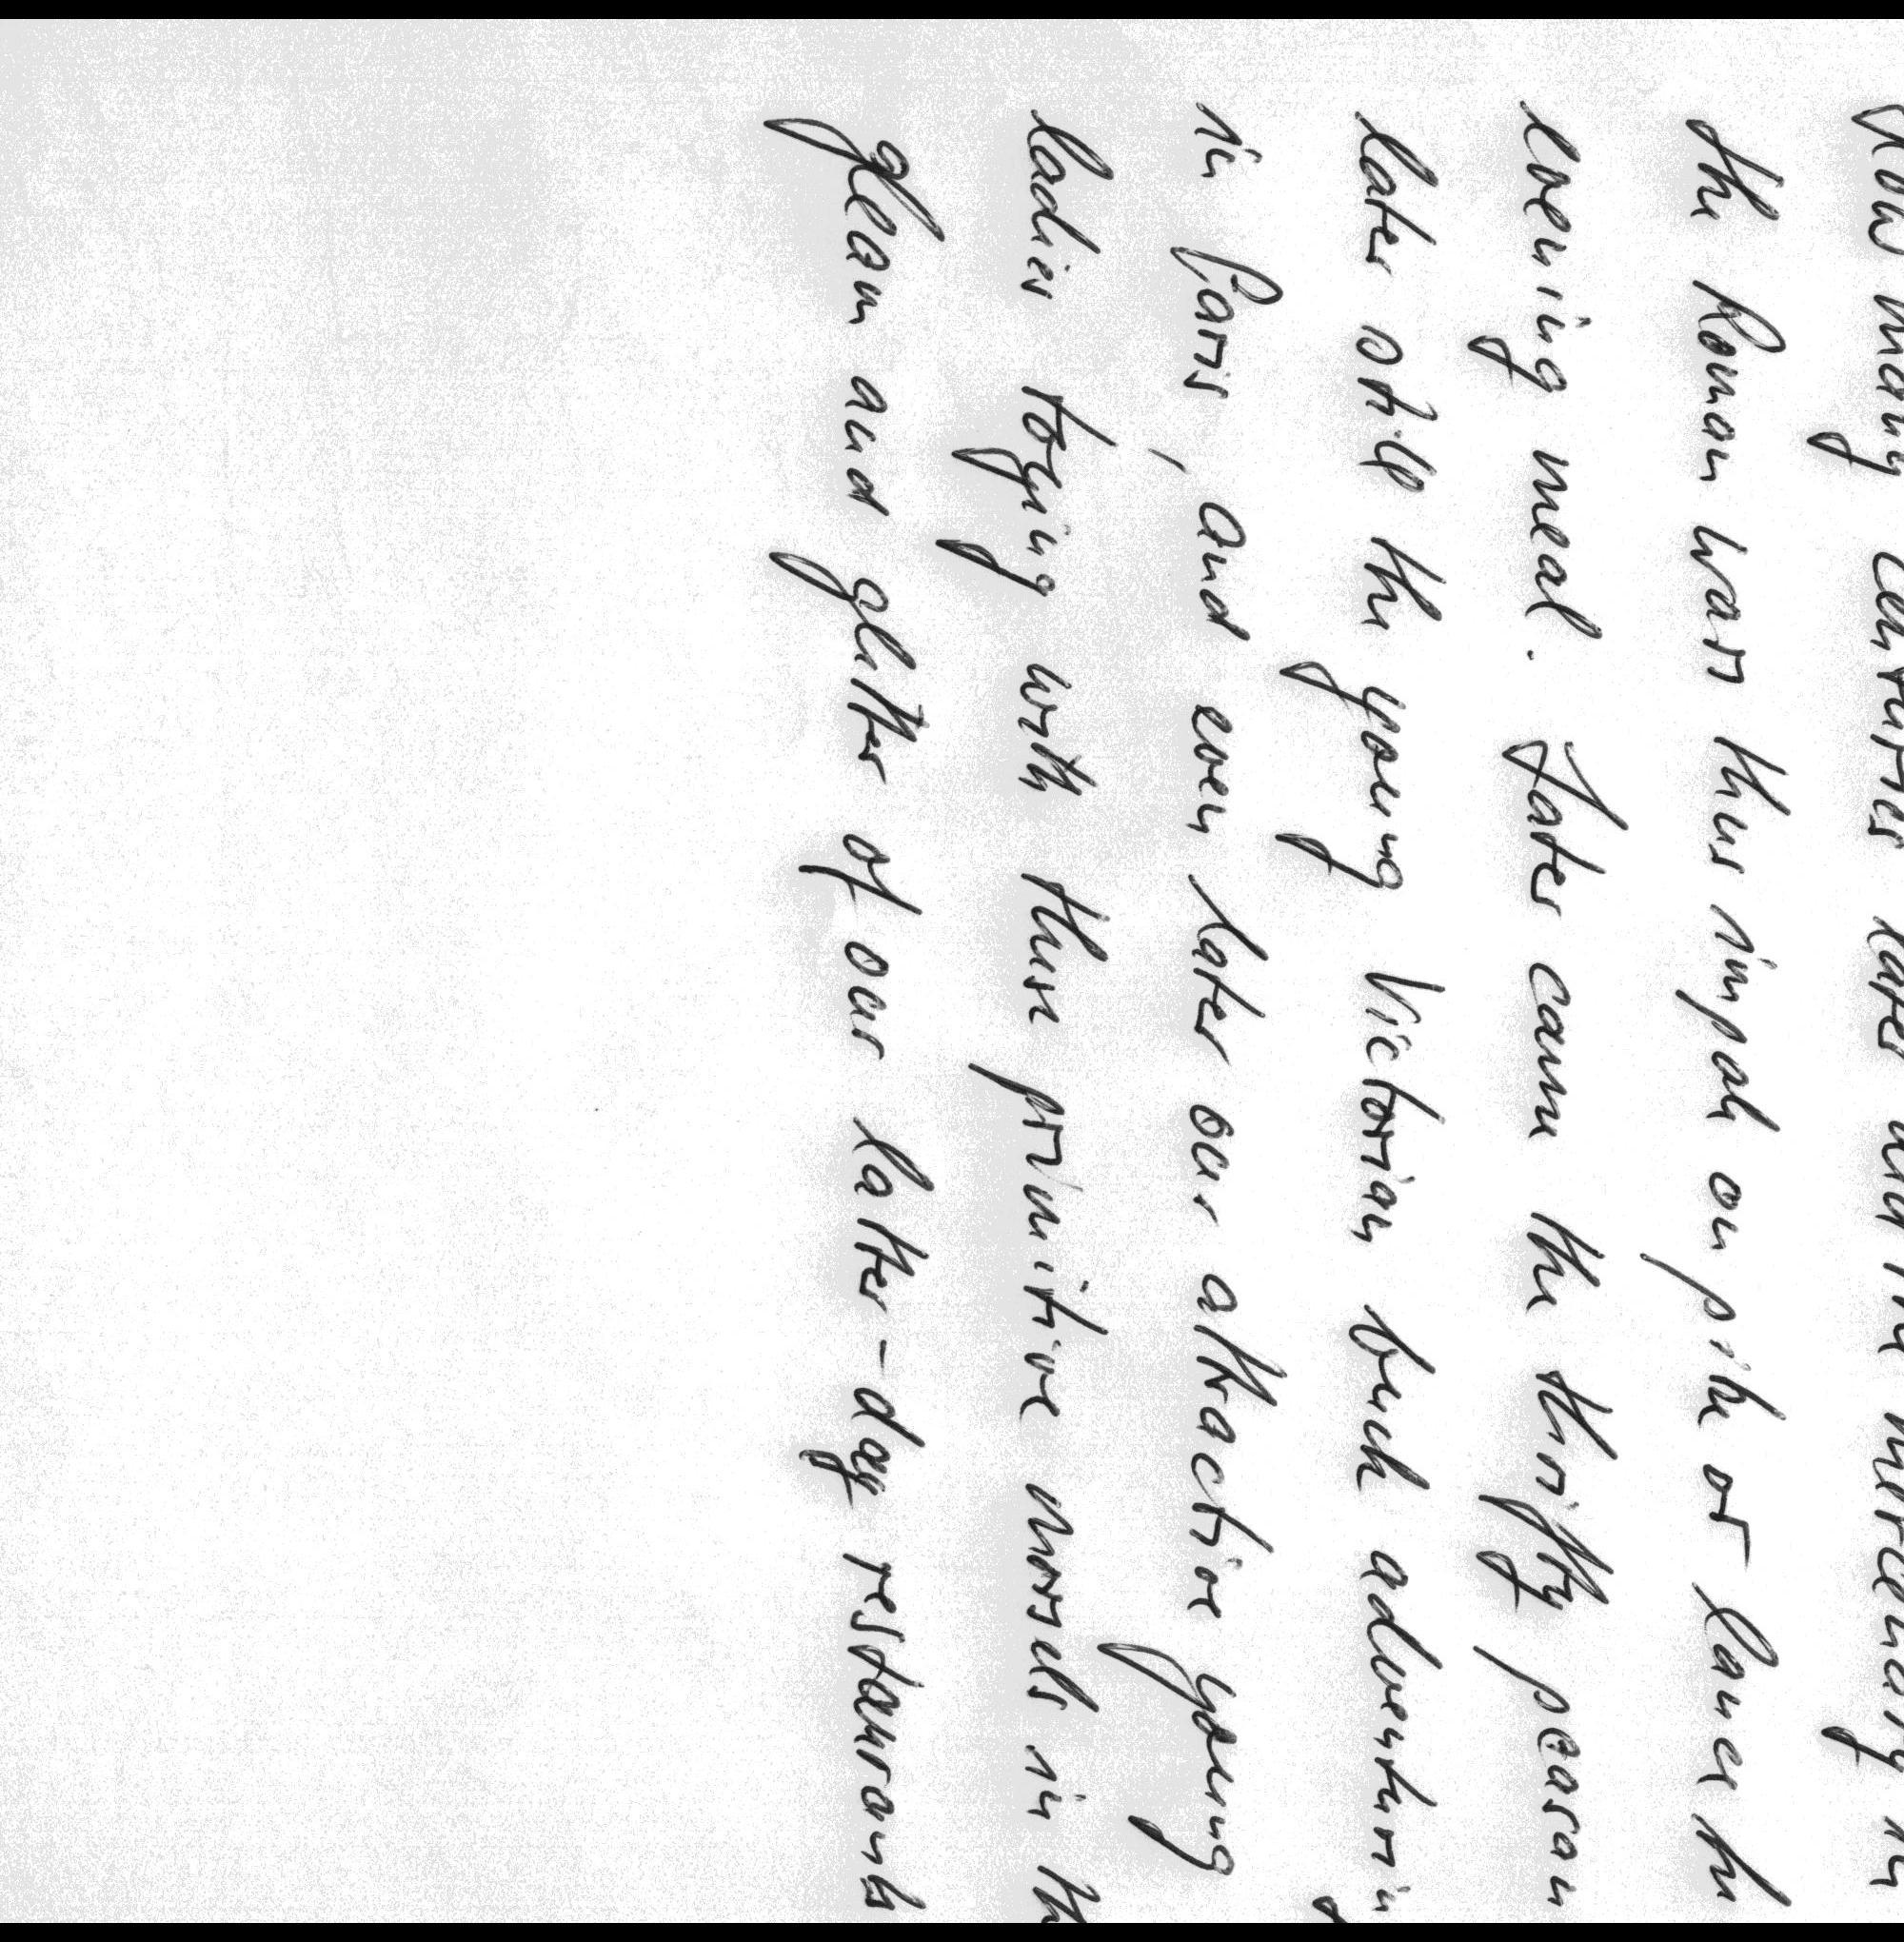 How many centuries later did the mercenary in
the Roman wars thus impale on pike or lance his
evening meal. Later came the thrifty peasan
later still the young Victorian buck adventurin
in Paris, and even later our attractive young
ladies toying with these primitive morsels in th
gleam and glitter of our latter-day restaurants